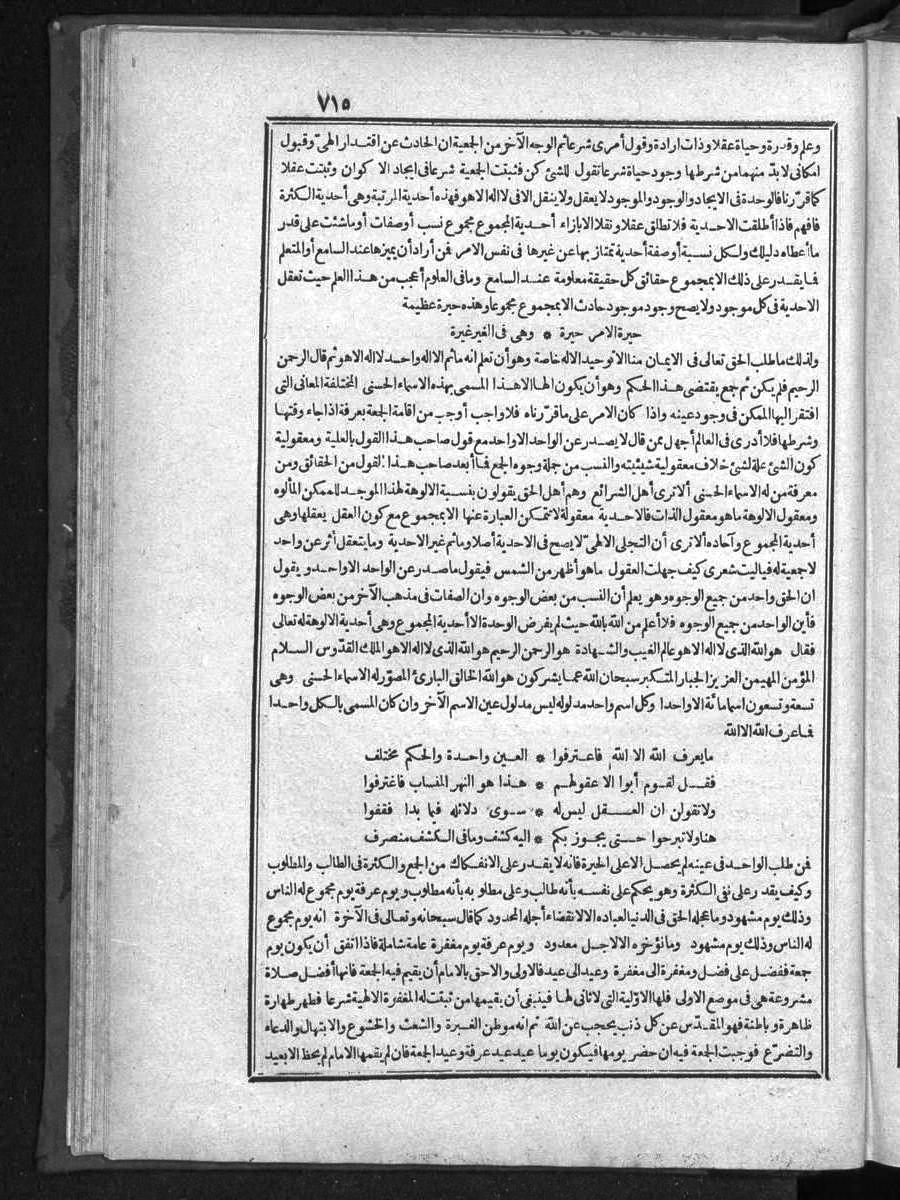 ٧١٥
وعلم وقدرة وحياة عقلا وذات ارادة وقول أمرى شرعا ثم الوجه الآخر من الجمعية ان الحادث عن اقتدار الهىّ وقبول
امكانى لابدّ منهما من شرطها وجود حياة شرعا تقول للشئ كن فثبتت الجمعية شرعا فى ايجاد الا كوان وثبتت عقلا
كما قرّرنا فالوحدة فى الايجاد والوجود والموجود لا يعقل ولا ينقل الا فى لا اله الا هو فهذه أحدية المرتبة وهى أحدية الكثرة
فافهم فاذا أطلقت الاحدية فلا تطلق عقلا ونقلا الا بازاء أحدية المجموع مجموع نسب أوصفات أو ماشئت على قدر
ما أعطاه دليلك ولكل نسبة أوصفة أحدية تمتاز بها عن غيرها فى نفس الامر فمن أراد أن يميزها عند السامع أو المتعلم
فما يقدر على ذلك الا بمجموع حقائق كل حقيقة معلومة عند السامع وما فى العلوم أعجب من هذا العلم حيث تعقل
الاحدية فى كل موجود ولا يصح وجود موجود حادث الا بمجموع مجموعا وهذه حيرة عظيمة
حيرة الامر حيرة * وهى فى الغير غيرة
ولذلك ما طلب الحق تعالى فى الايمان منا الا توحيد الاله خاصة وهو أن تعلم انه ما ثم الا اله واحد لا اله الا هو ثم قال الرحمن
الرحيم فلم يكن ثم جمع يقتضى هذا الحكم وهو أن يكون الها الا هذا المسمى بهذه الاسماء الحسنى المختلفة المعانى التى
افتقر اليها الممكن فى وجود عينه واذا كان الامر على ما قرّرناه فلا واجب أوجب من اقامة الجمعة بعرفة اذا جاء وقتها
وشرطها فلا أدرى فى العالم أجهل ممن قال لا يصدر عن الواحد الا واحد مع قول صاحب هذا القول بالعلية ومعقولية
كون الشئ علة لشئ خلاف معقولية شيئيته والنسب من جملة وجوه الجمع فما أبعد صاحب هذا القول من الحقائق ومن
معرفة من له الاسماء الحسنى ألا ترى أهل الشرائع وهم أهل الحق يقولون بنسبة الالوهة لهذا الموجد للممكن المألوه
ومعقول الالوهة ما هو معقول الذات فالاحدية معقولة لا تتمكن العبارة عنها الا بمجموع مع كون العقل يعقلها وهى
أحدية المجموع وآحاده ألا ترى أن التجلى الالهىّ لا يصح فى الاحدية أصلا وما ثم غير الاحدية وما يتعقل أثر عن واحد
لا جمعية له فيا ليت شعرى كيف جهلت العقول ما هو أظهر من الشمس فيقول ما صدر عن الواحد الا واحد ويقول
ان الحق واحد من جميع الوجوه وهو يعلم أن النسب من بعض الوجوه وان الصفات فى مذهب الآخر من بعض الوجوه
فأين الواحد من جميع الوجوه فلا أعلم من اللّه باللّه حيث لم يفرض الوحدة الا أحدية المجموع وهى أحدية الالوهة له تعالى
فقال هو اللّه الذى لا اله الا هو عالم الغيب والشهادة هو الرحمن الرحيم هو اللّه الذى لا اله الا هو الملك القدّوس السلام
المؤمن المهيمن العزيز الجبار المتكبر سبحان اللّه عما يشركون هو اللّه الخالق البارئ المصوّر له الاسماء الحسنى وهى
تسعة وتسعون اسما مائة الا واحدا وكل اسم واحد مدلوله ليس مدلول عين الاسم الآخر وان كان المسمى بالكل واحدا
فما عرف اللّه الا اللّه
ما يعرف اللّه الا اللّه فاعترفوا * العين واحدة والحكم مختلف
فقل لقوم أبوا الا عقولهم * هذا هو النهر المنساب فاغترفوا
ولا تقولن ان العقل ليس له * سوى دلائله فيما بدا فقفوا
هنا ولا تبرحوا حتى يجوز بكم * اليه كشف وما فى الكشف منصرف
فمن طلب الواحد فى عينه لم يحصل الا على الحيرة فانه لا يقدر على الانفكاك من الجمع والكثرة فى الطالب والمطلوب
وكيف يقدر على نفى الكثرة وهو يحكم على نفسه بأنه طالب وعلى مطلوبه بأنه مطلوب ويوم عرفة يوم مجموع له الناس
وذلك يوم مشهود وما عجله الحق فى الدنيا لعباده الا لانقضاء أجله المحدود كما قال سبحانه وتعالى فى الآخرة انه يوم مجموع
له الناس وذلك يوم مشهود وما نؤخره الا لاجل معدود ويوم عرفة يوم مغفرة عامة شاملة فاذا اتفق أن يكون يوم
جمعة ففضل على فضل ومغفرة الى مغفرة وعيد الى عيد فالاولى والاحق بالامام أن يقيم فيه الجمعة فانها أفضل صلاة
مشروعة هى فى موضع الاولى فلها الاوّلية التى لا ثانى لها فينبغى أن يقيمها من ثبتت له المغفرة الالهية شرعا فطهر طهارة
ظاهرة وباطنة فهو المقدّس عن كل ذنب يحجب عن اللّه ثم انه موطن الغبرة والشعث والخشوع والابتهال والدعاء
والتضرّع فوجبت الجمعة فيه ان حضر يومها فيكون يوما عيد عيد عرفة وعيد الجمعة فان لم يقمها الامام لم يحظ الا بعيد